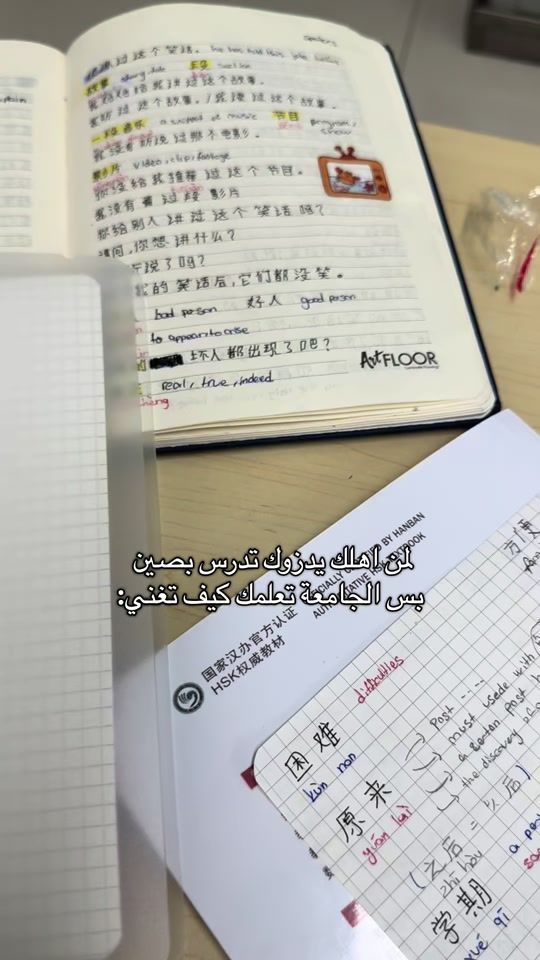 speakers
过这个笑话。 he has told this joke before
故事 段 section
妈妈给我讲过这个故事。
我听过这个故事。/我读过这个故事。
一段音乐 a section of music 节目 program/show
我没有听说过那个电影。
影片 video, clip, footage
你没给我推荐过这个节目。
我没有看过段影片
你给别人讲过这个笑话吗?
请问,你想讲什么?
听说了吗?
我的笑话后,它们都没笑。
bad person 好人 good person
to appear, to arise
坏人都出现了吧?
real, true, indeed
ArtFLOOR
لمن اهلك يدزوك تدرس بصين
بس الجامعة تعلمك كيف تغني:
国家汉办官方认证
HSK权威教材
BY HANBAN
difficulties
困难
kùn nan
原来
yuán lái
Past
must usede with
the discovery of
(之后 = 以后)
zhī hòu
学期
xué qī